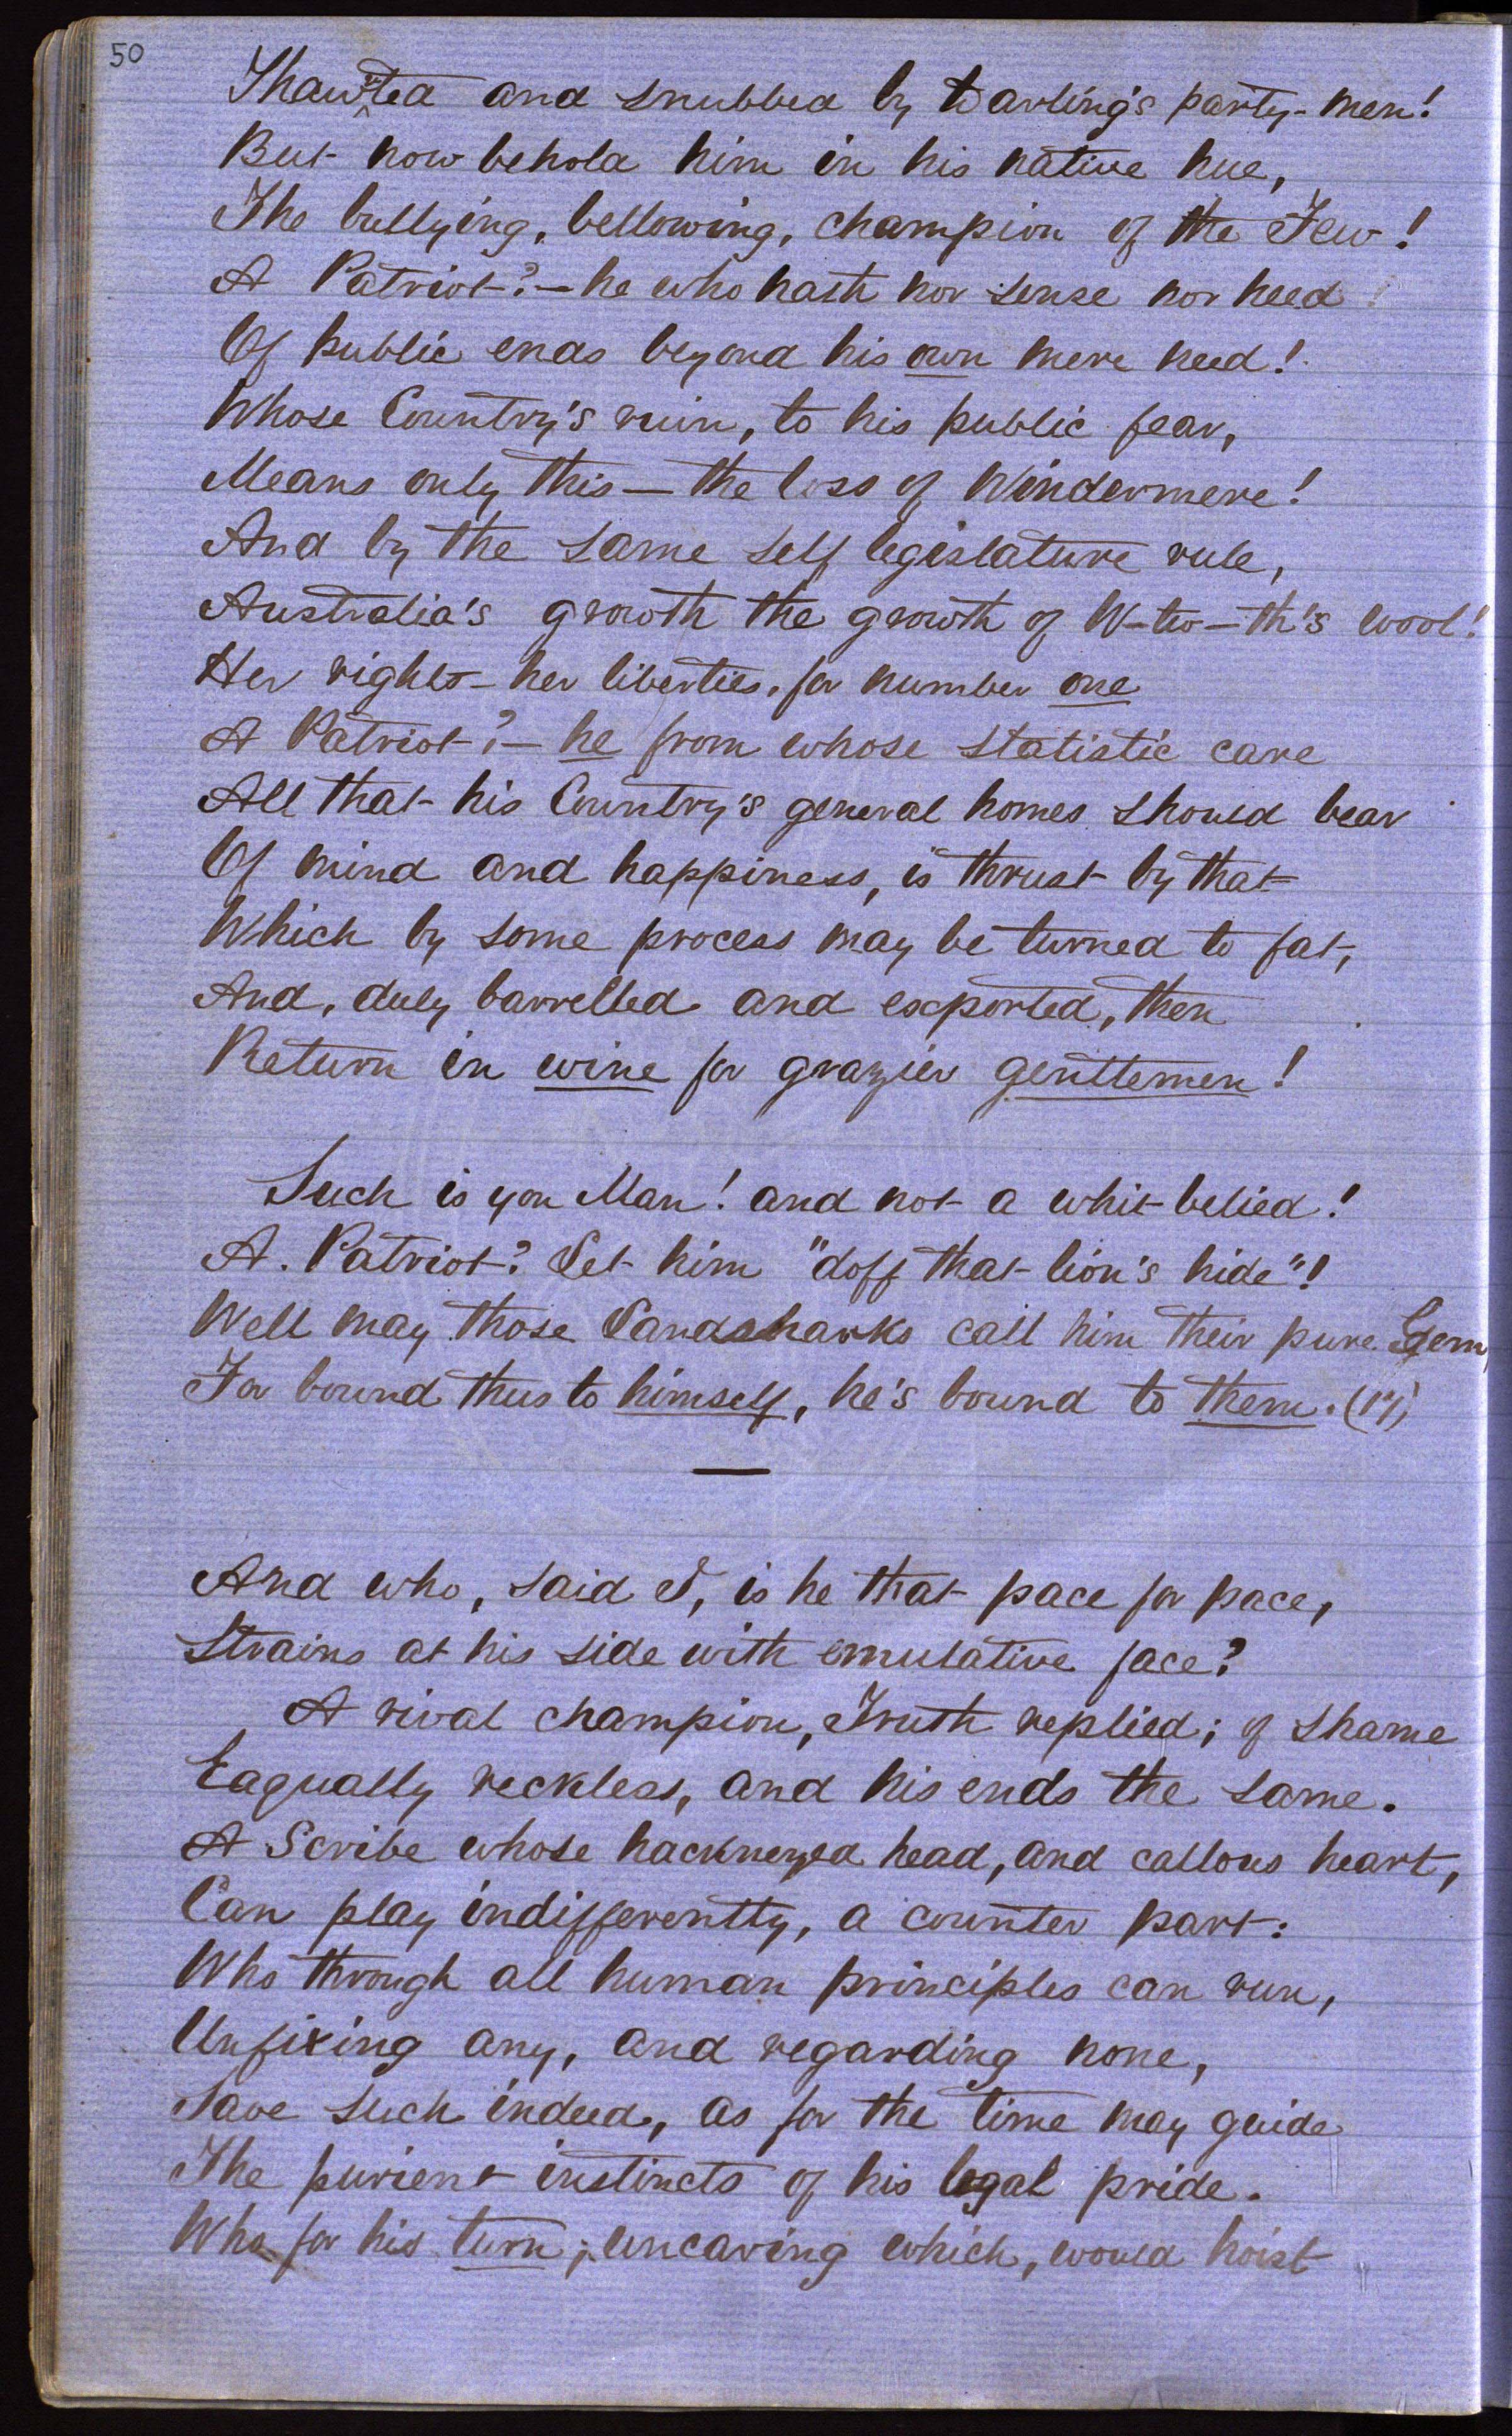 50
Thawrted and snubbed by Darling's party-men!
But now behold him in his native hue,
The bullying, bellowing, champion of the Few!
A Patriot?—he who hath nor sense nor heed
Of public ends beyond his own mere need!
Whose Country's ruin, to his public fear,
Means only this—the loss of Windermere!
And by the same self legislature rule,
Australia's growth the growth of W-tw-th's wool!
Her rights—her liberties, for number one
A Patriot?—he from whose statistic care
All that his Country's general homes should bear
Of mind and happiness, is thrust by that
Which by some process may be turned to fat,
And, duly barrelled and exported, then
Return in wine for grazier gentlemen!
Such is yon Man! and not a whit belied!
A. Patriot? Let him "doff that lion's hide"!
Well may those Landsharks call him their pure Gem,
For bound thus to himself, he's bound to them. (17)
And who, said I, is he that pace for pace,
Strains at his side with emulative face?
A rival champion, Truth replied; of shame
Eaqually reckless, and his ends the same.
A Scribe whose hackneyed head, and callous heart,
Can play indifferently, a counter part:
Who through all human principles can run,
Unfixing any, and regarding none,
Save such indeed, as for the time may guide
The purient instincts of his legal pride.
Who for his turn; uncaring which, would hoist